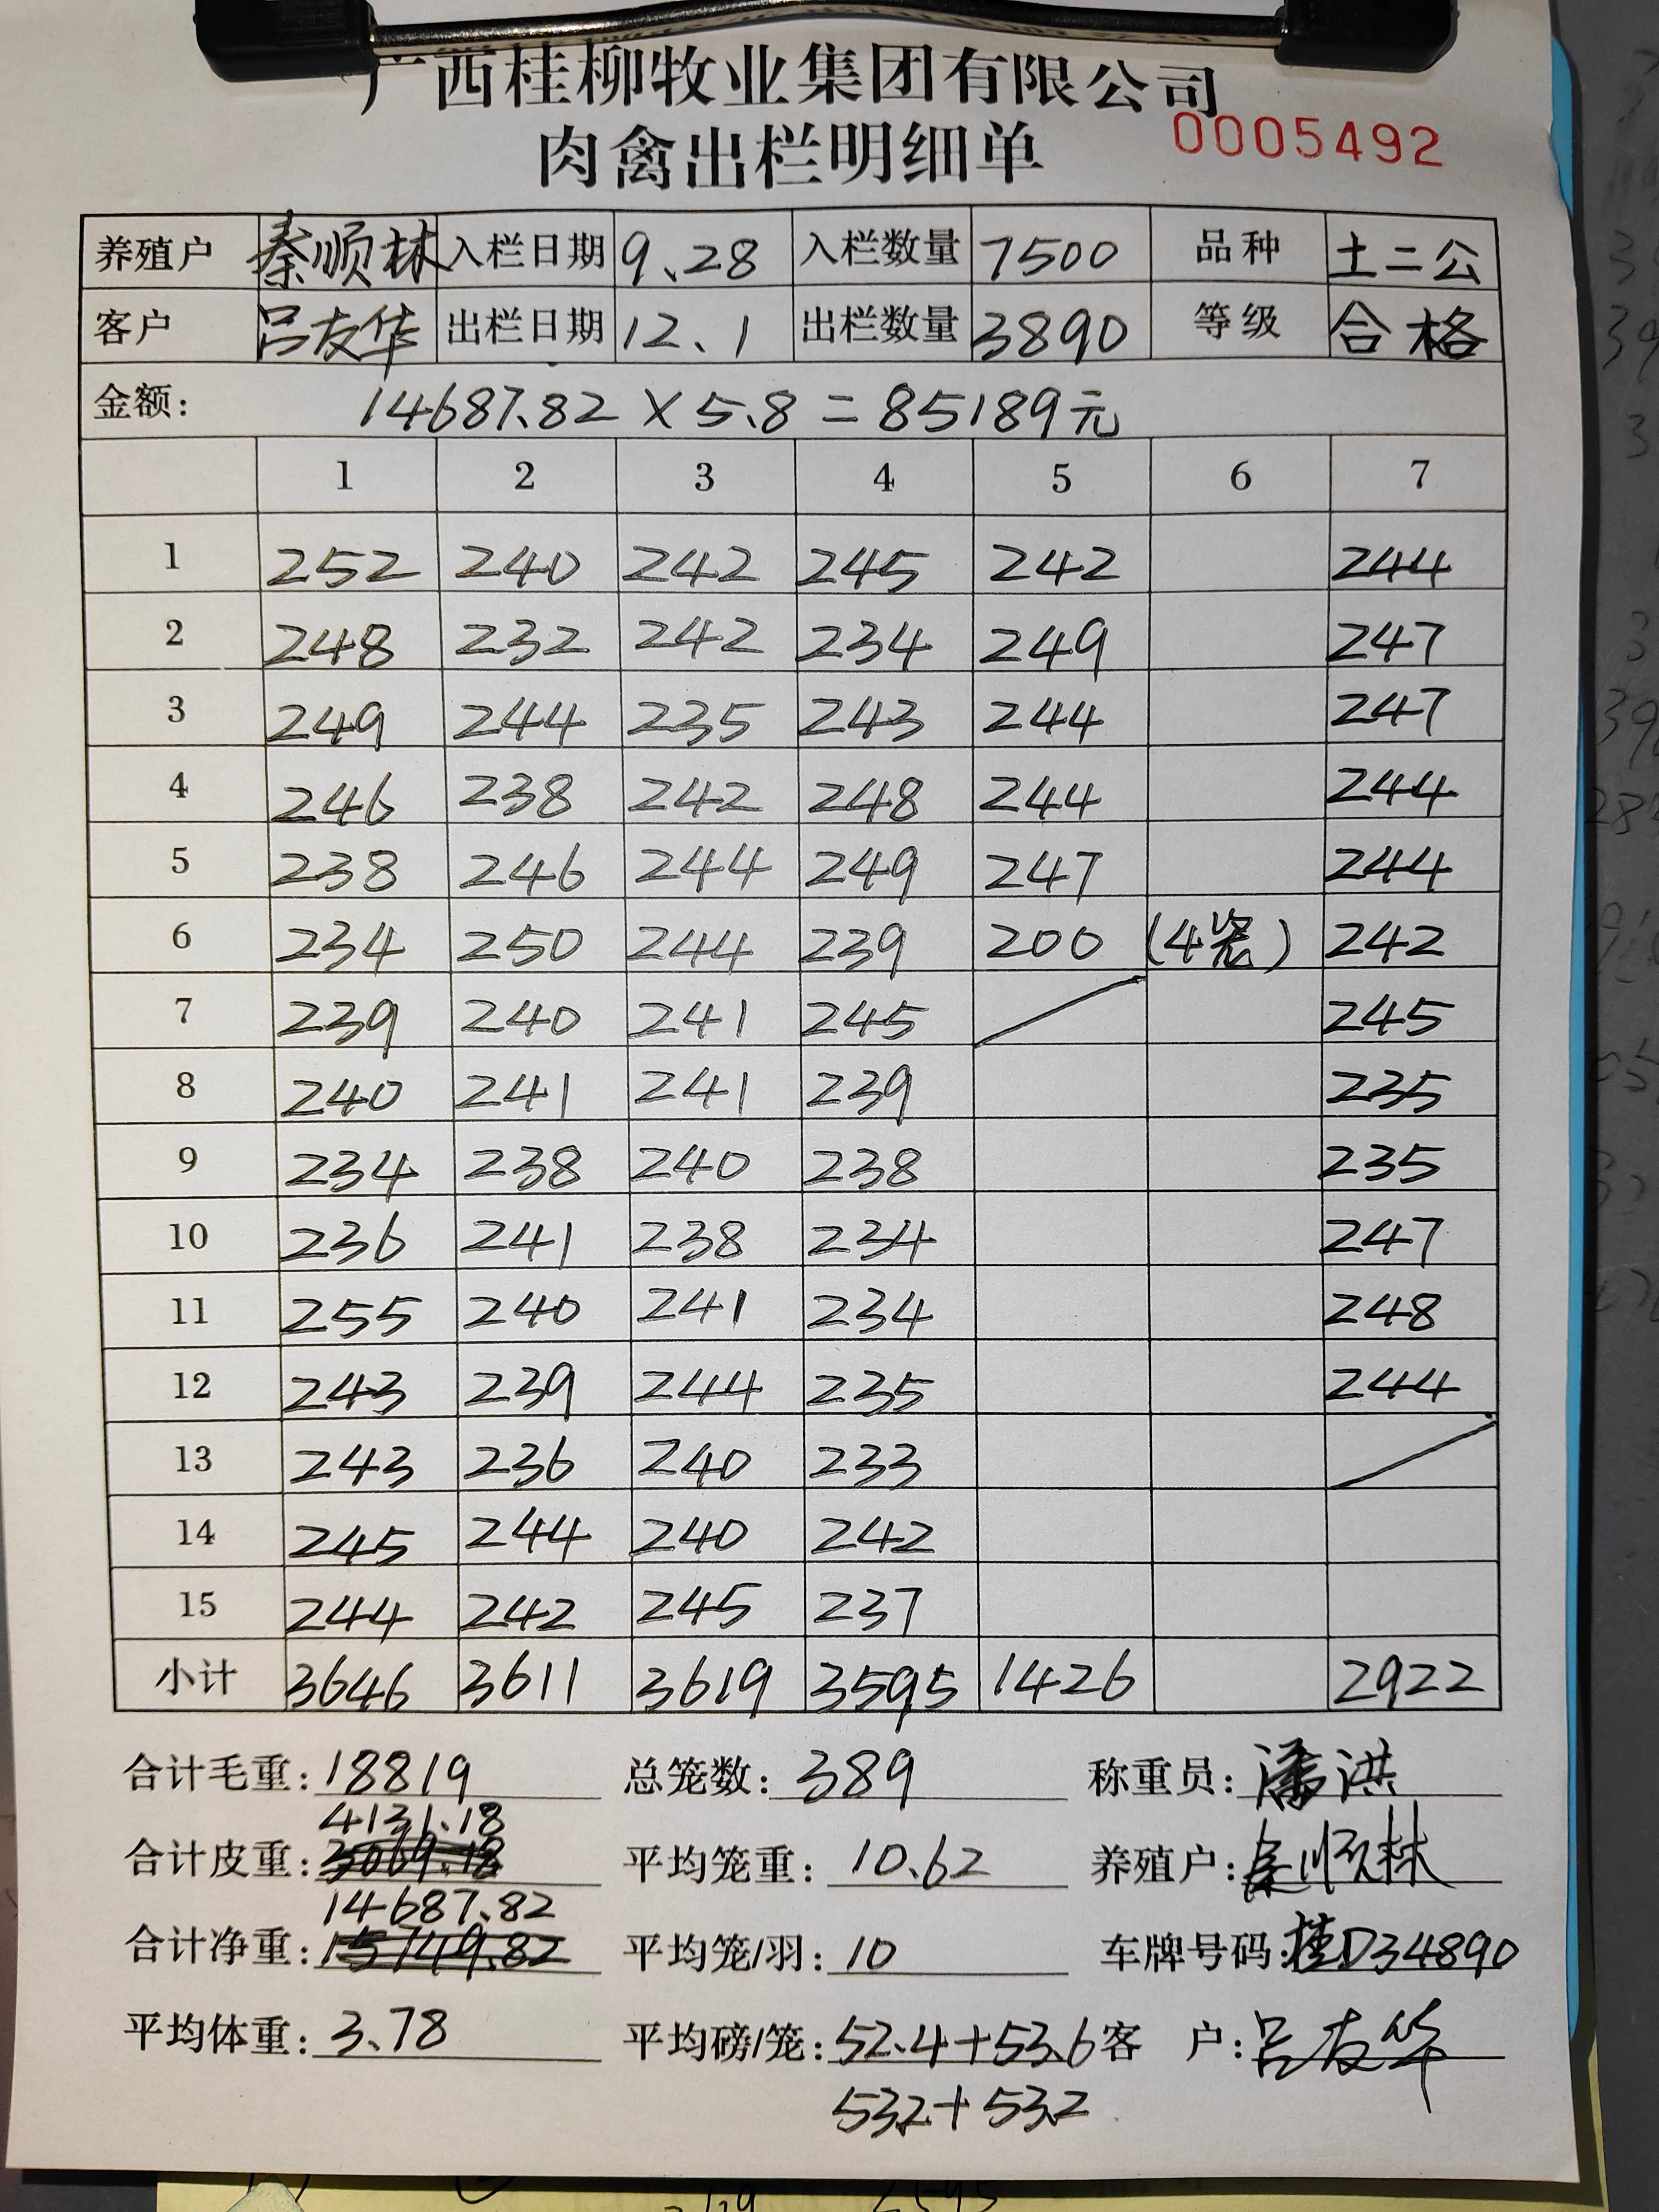 广西桂柳牧业集团有限公司
肉禽出栏明细单 0005492
养殖户 秦顺林 入栏日期 9、28 入栏数量 7500 品种 土二公
客户 吕友华 出栏日期 12、1 出栏数量 3890 等级 合格
金额: 14687.82 × 5.8 = 85189元
1 2 3 4 5 6 7
1 252 240 242 245 242 244
2 248 232 242 234 249 247
3 249 244 235 243 244 247
4 246 238 242 248 244 244
5 238 246 244 249 247 244
6 234 250 244 239 200 (4笼) 242
7 239 240 241 245 245
8 240 241 241 239 235
9 234 238 240 238 235
10 236 241 238 234 247
11 255 240 241 234 248
12 243 239 244 235 244
13 243 236 240 233
14 245 244 240 242
15 244 242 245 237
小计 3646 3611 3619 3595 1426 2922
合计毛重: 18819 总笼数: 389 称重员: 潘洪
4131.18
合计皮重: 3069.18 平均笼重: 10.62 养殖户: 秦顺林
14687.82
合计净重: 15749.82 平均笼/羽: 10 车牌号码: 桂D34890
平均体重: 3.78 平均磅/笼: 52.4+53.6 客 户: 吕友华
53.2+53.2